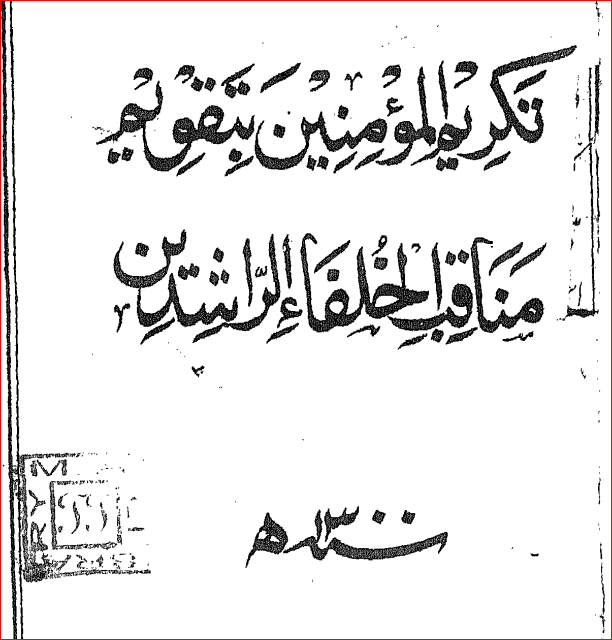 تَكرِيمُ المُؤمِنِينَ بِتَقوِيمِ
مَنَاقِبِ الخُلَفَاءِ الرَّاشِدِينَ
سنة ١٣٠٠ ھ